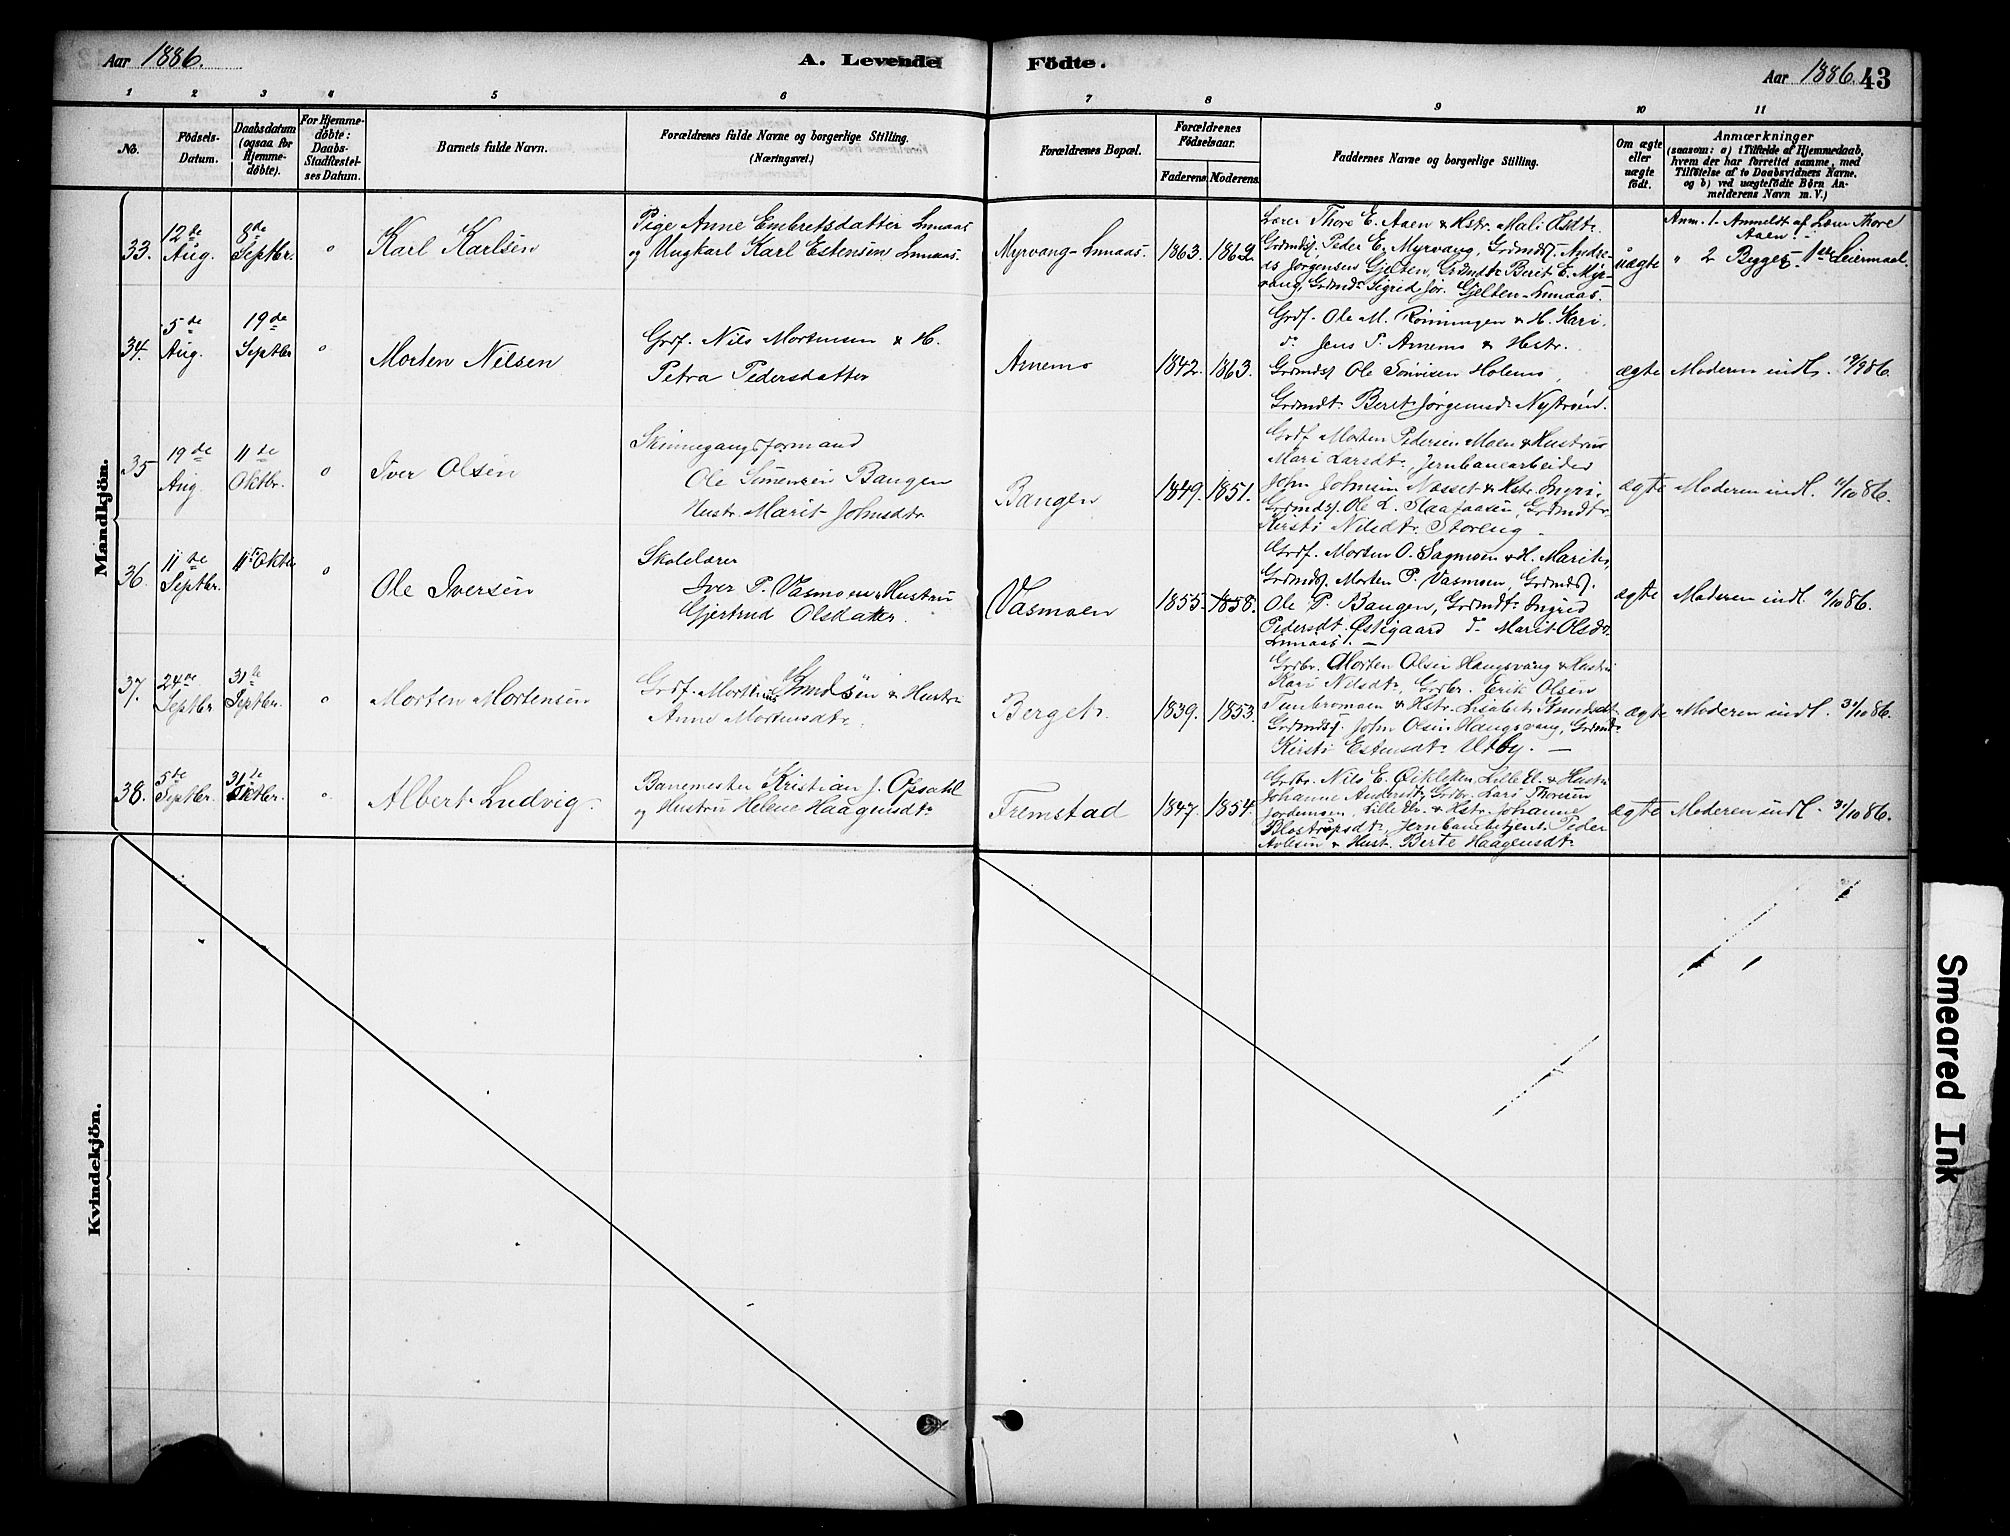 Aar 1886.
A. Levende Födte.
Aar 1886. 43
1 2 3 4 5 6 7 8 9 10 11
No.
Födsels-Datum.
Daabsdatum (ogsaa for Hjemme-döbte).
For Hjemme-döbte: Daabs-Stadfæstel-ses Datum.
Barnets fulde Navn.
Forældrenes fulde Navne og borgerlige Stilling. (Næringsvei.)
Forældrenes Bopæl.
Forældrenes Födselsaar.
Faderens Moderens
Faddernes Navne og borgerlige Stilling.
Om ægte eller uægte födt.
Anmærkninger
(saasom: a) i Tilfælde af Hjemmedaab,
hvem der har forrettet samme, med
Tilföielse af to Daabsvidners Navne.
og b) ved uægtefödte Börn An-
melderens Navn m. V.)
Mandkjön.
33. 12te Aug. 8de Septbr. o Karl Karlsen
Pige Anne Embretsdatter Lunaas
og Ungkarl Karl Estensen Lunaas.
Myrvang-Lunaas. 1863. 1862.
Lærer Thore E. Aaen & Hstr. Mali Olsdtr.
Grdmds. Peder E. Myrvang, Grdmds. Andre-
as Jørgensen Gjelten, Grdmdtr Berit E. Myr-
vang, Grdmdr Sigrid Jør. Gjelten-Lunaas.
uægte
Anm. 1. Anmeldt af Lærer Thore
Aaen.
" 2 Begges 1ste Leiermaal.
34. 5te Aug. 19de Septbr o Morten Nilsen
Grdf. Nils Mortensen & H.
Petra Pedersdatter
Arnemo 1842. 1863.
Grdf. Ole M. Rønningen & H. Kari,
do Jens P. Arnemo & Hstr.
Grdmds Ole Simensen Holemo,
Grdmdtr Berit Jørgensdr Nystrøen.
ægte Moderen indl. 19/9 86.
35 19de Aug. 11te Oktbr. o Iver Olsen
Skinnegangsformand
Ole Simensen Bangen
Hustr. Marit Johnsdtr.
Bangen 1849. 1851.
Grdf Morten Pedersen Moen & Hustru
Mari Larsdtr, Jernbanearbeider
John Johnsen Nesset & Hstr. Ingri,
Grdmds. Ole L. , Grdmdtr
Kirsti Nilsdtr. Storeng.
ægte Moderen indl. 11/10 86.
36. 11te Septbr. 11te Oktbr o Ole Iversen
Skolelærer
Iver P. Vasmoen & Hustru
Gjertrud Olsdatter.
Vasmoen 1855. 1858.
Grdf. Morten O. Sagmoen & H. Marit,
Grdmds. Morten P. Vasmoen, Grdmds.
Ole P. Bangen, Grdmdtr Ingrid
Pedersdt. Østigaard do Marit Olsdr
Lunaas. —
ægte Moderen indl. 11/10 86.
37. 24de Septbr 31te Septbr. o Morten Mortensen
Grdf. Morten Knudsen & Hustru
Anne Mortensdtr
Berget. 1839. 1853.
Grdbr. Morten Olsen Haugsvang & Hustru
Kari Nilsdtr, Grdbr. Erik Olsen
Tunbromoen & Hstr. Lisabet Knudsdt.
Grdmds. John Olsen Haugsvang, Grdmdr
Kirsti Estensdtr Utby. —
ægte Moderen indl. 31/10 86.
38. 5te Septbr. 31te Oktbr. o. Albert Ludvig
Banemester Kristian J. Opsahl
og Hustru Helene Haagensdtr
Fremstad 1847. 1854.
Grdbr. Nils E. Lille El. & Hustr
Johanne Andersdt, Grdbr. Lars Thoresen
Jordemoen, Lille El. & Hstr. Johanne
, Jernbanebetjent Peder
& Hust. Berte Haagensdtr
ægte Moderen indl. 31/10 86.
Kvindekjön.
Smeared Ink